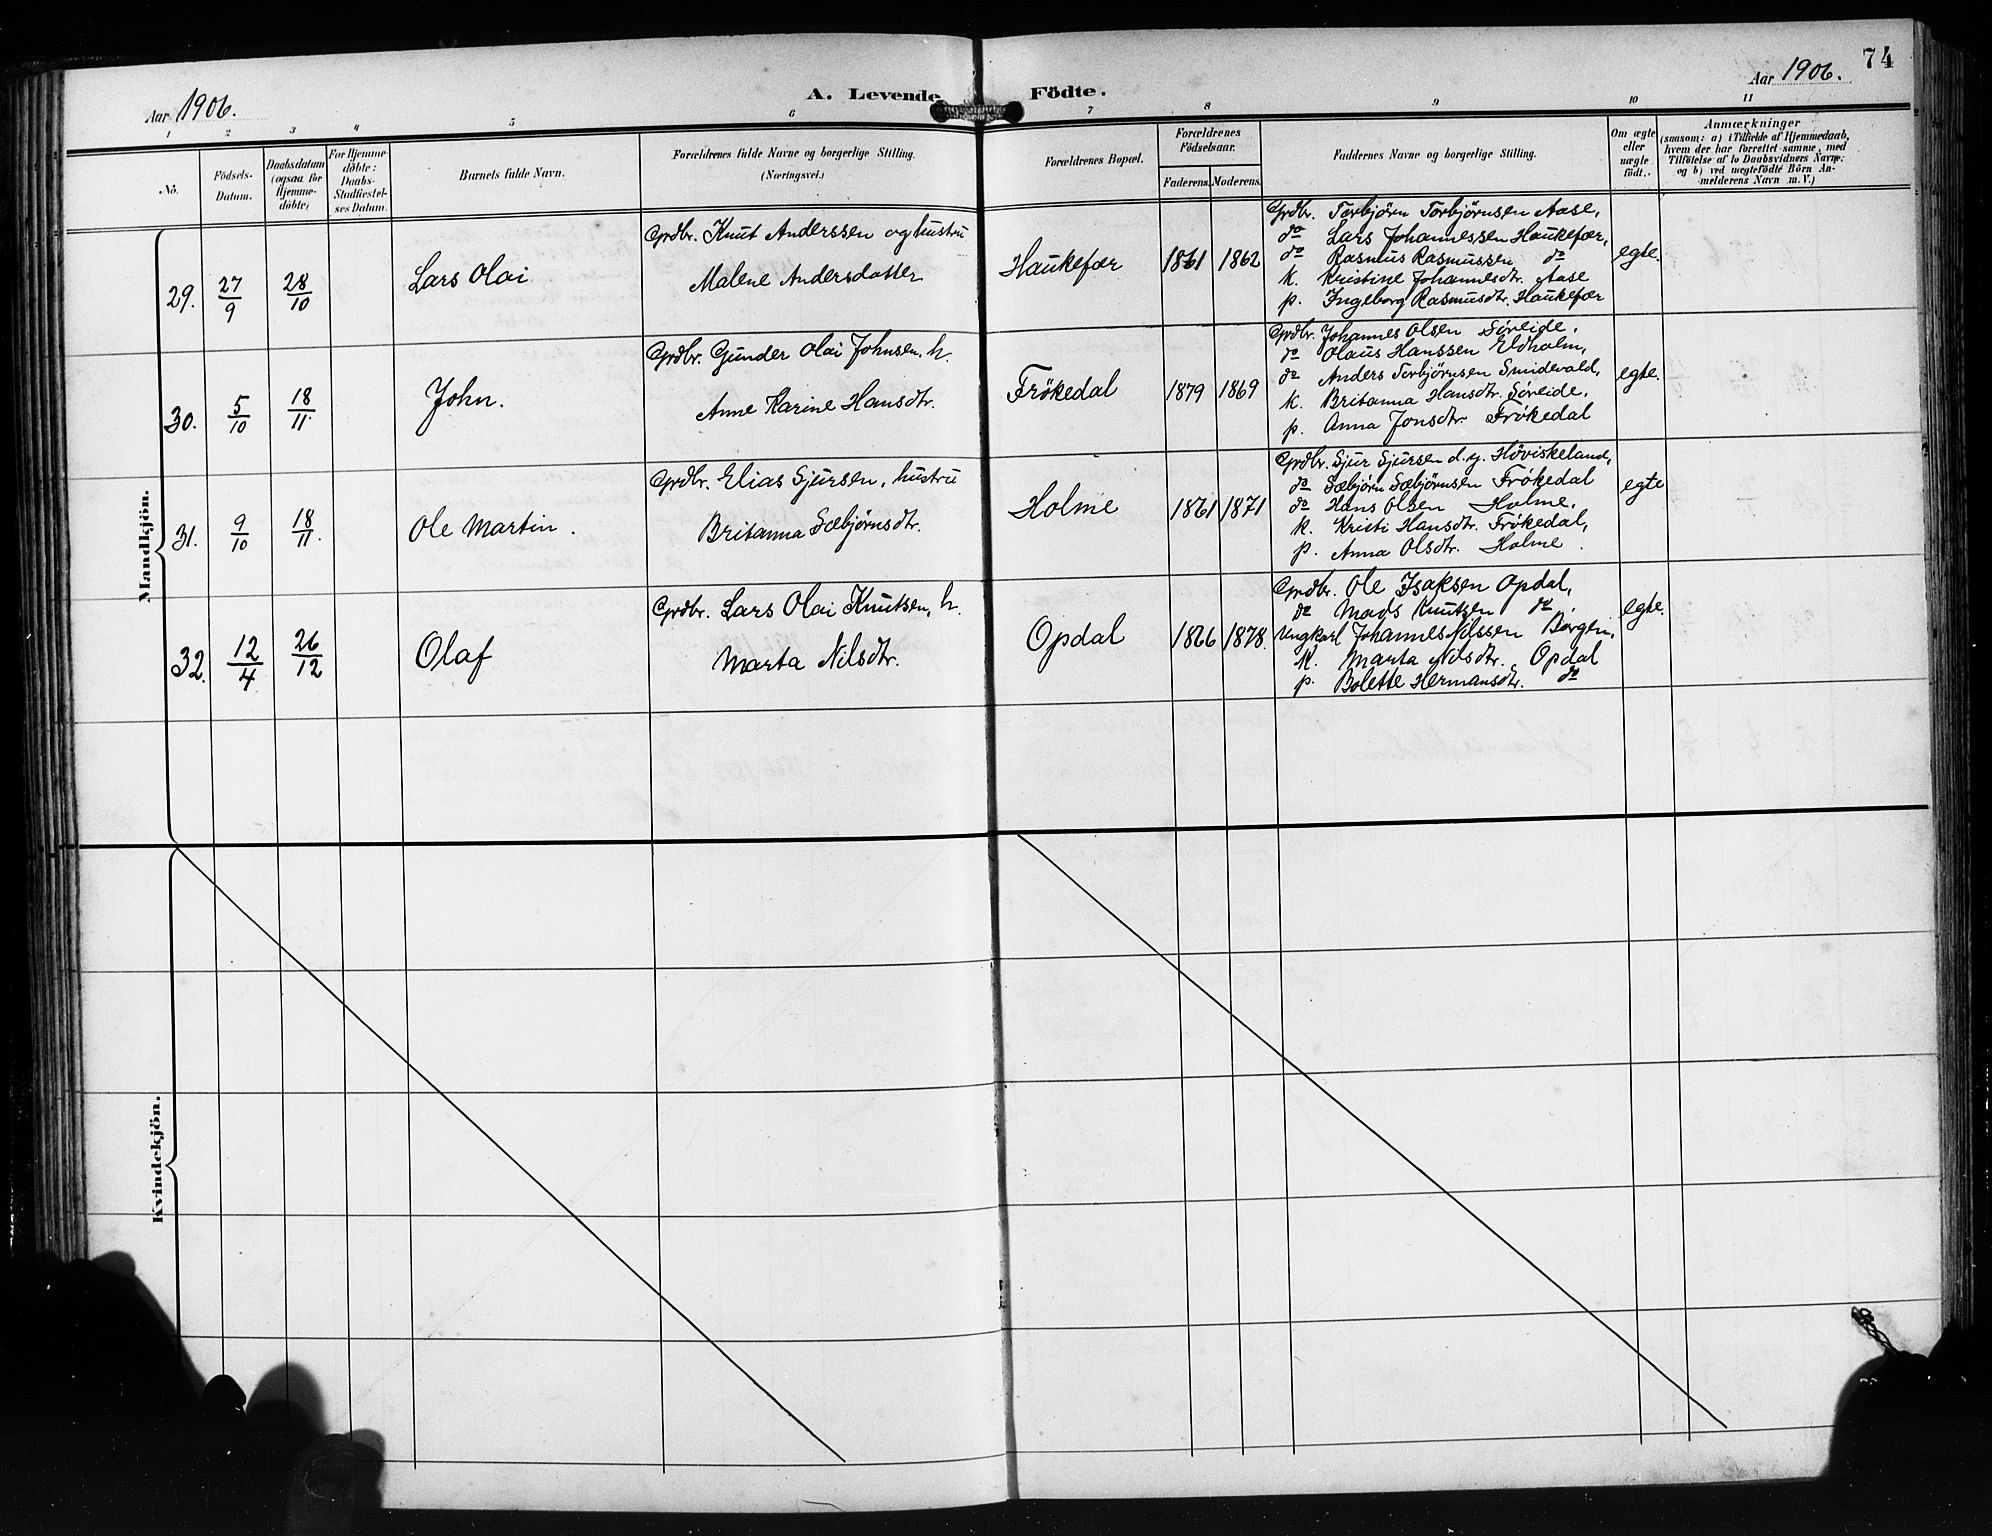 74
Aar 1906.
A. Levende Födte.
Aar 1906.
1 2 3 4 5 6 7 8 9 10 11
No.
Födsels-Datum.
Daabsdatum (ogsaa for Hjemme-döbte)
For Hjemme-döbte: Daabs-Stadfæstel-ses Datum.
Barnets fulde Navn.
Forældrenes fulde Navne og borgerlige Stilling. (Næringsvei.)
Forældrenes Bopæl.
Forældrenes Födselsaar.
Faderens. Moderens.
Faddernes Navne og borgerlige Stilling.
Om ægte eller uægte födt.
Anmærkninger
(saasom: a) i Tilfælde af Hjemmedaab,
hvem der har forrettet samme, med
Tilföielse af to Daabsvidners Navne;
og b) ved uægtefödte Börn An-
melderens Navn m. V.)
Mandkjön.
29. 27/9 28/10 Lars Olai
Grdbr. Knut Anderssen og hustru
Malene Andersdatter
Haukefær 1861 1862
Grdbr. Torbjörn Torbjörnsen Aase,
do Lars Johannessen Haukefær,
do Rasmus Rasmussen do
k. Kristine Johannesdtr. Aase
p. Ingeborg Rasmusdtr. Haukefær
egte.
30. 5/10 18/11. John.
Grdbr. Gunder Olai Johnsen, h.
Anne Karine Hansdtr.
Frökedal 1879 1869
Grdbr. Johannes Olsen Söreide.
do Olaus Hanssen Eldholm,
do Anders Torbjörnsen Smidevald,
k. Britanna Hansdtr. Söreide,
p. Anna Jonsdtr. Frökedal
egte.
31. 9/10 18/11. Ole Martin.
Grdbr. Elias Sjursen, hustru
Britanna Sæbjörnsdtr.
Holme 1861 1871
Grdbr. Sjur Sjursen d.y. Höviskeland,
do Sæbjörn Sæbjörnsen Frökedal
do Hans Olsen Holme.
k. Kristi Hansdtr. Frökedal,
p. Anna Olsdtr. Holme.
egte
32. 12/4 26/12 Olaf
Grdbr. Lars Olai Knutsen, h.
Marta Nilsdtr.
Opdal 1866 1878.
Grdbr. Ole Isaksen Opdal,
do Mads Knutzen do,
Ungkarl Johannes Nilssen Børgen,
k. Marta Nilsdtr. Opdal
p. Bolette Hermansdtr. do
egte.
Kvindekjön.